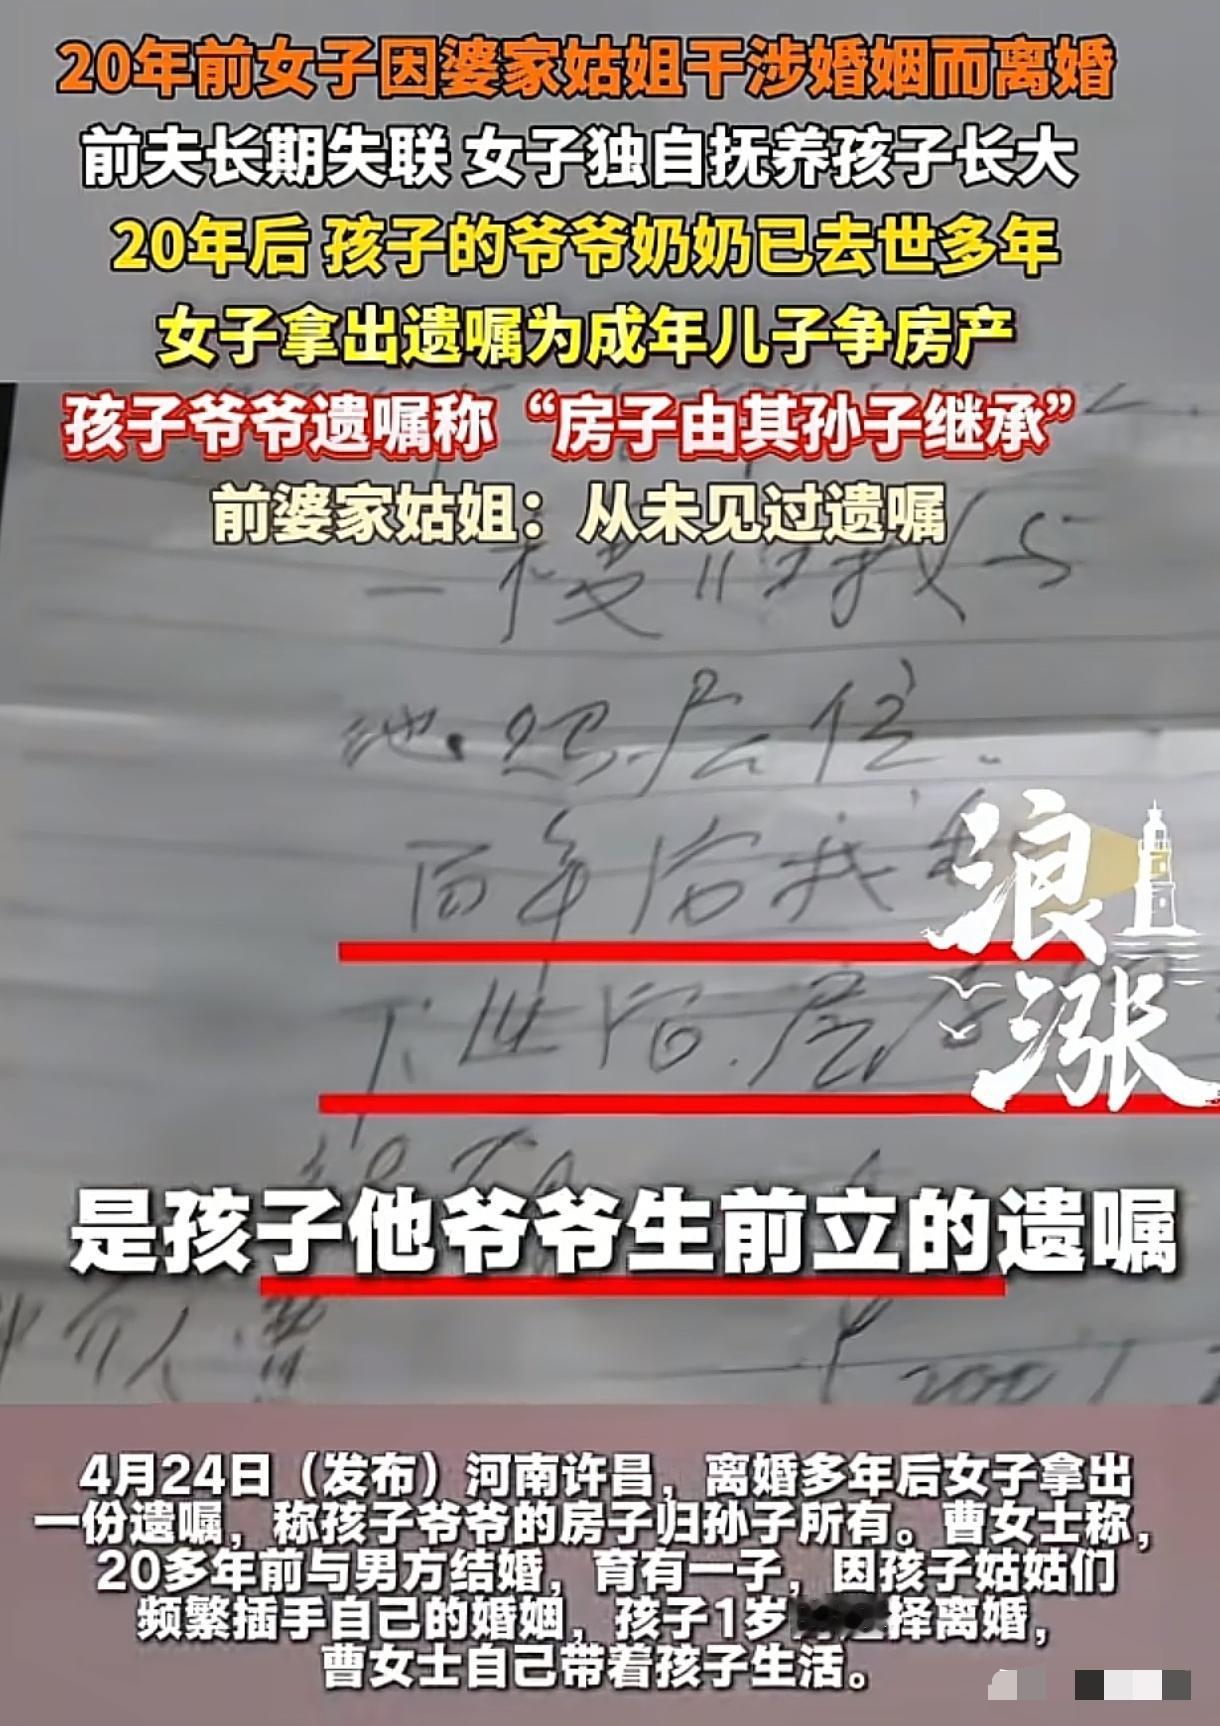 20年前女子因婆家姑姐干涉婚姻而离婚
前夫长期失联 女子独自抚养孩子长大
20年后 孩子的爷爷奶奶已去世多年
女子拿出遗嘱为成年儿子争房产
孩子爷爷遗嘱称“房子由其孙子继承”
前婆家姑姐：从未见过遗嘱
一楼归我与
她.俩居住.
百年后我
下世后.房
浪
涨
是孩子他爷爷生前立的遗嘱
介人
4月24日（发布）河南许昌，离婚多年后女子拿出
一份遗嘱，称孩子爷爷的房子归孙子所有。曹女士称，
20多年前与男方结婚，育有一子，因孩子姑姑们
频繁插手自己的婚姻，孩子1岁 择离婚，
曹女士自己带着孩子生活。